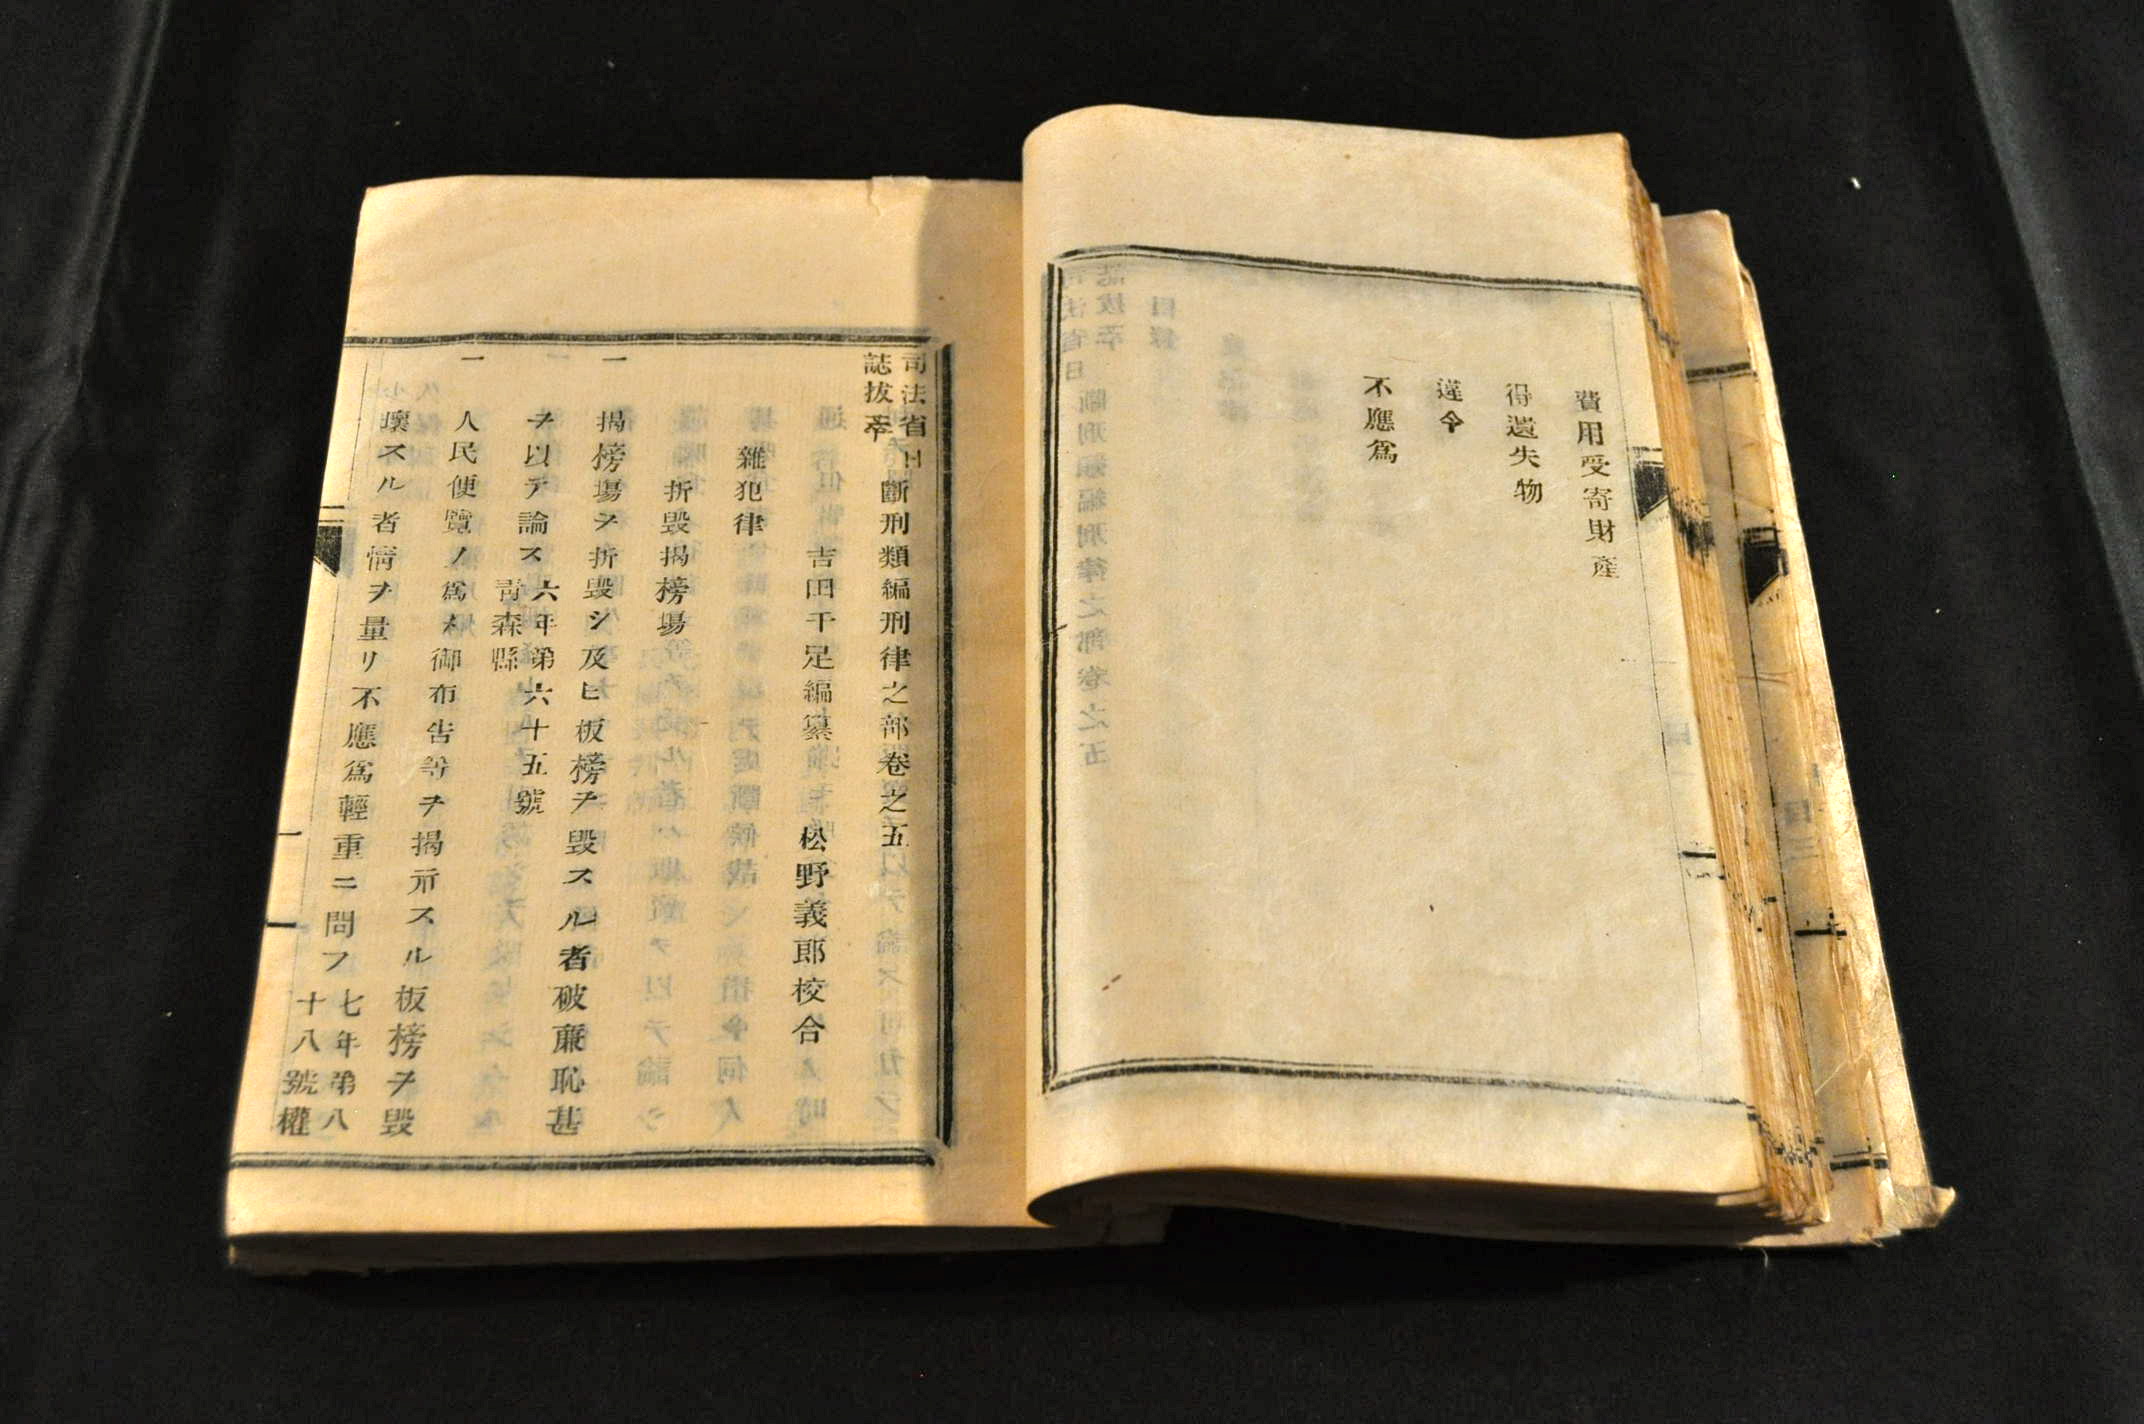 費用受寄財產
得遺失物
違令
不應爲
司法省日
誌拔萃
斷刑類編刑律之部卷之五
吉田千足編纂
松野義郎校合
雜犯律
折毀揭榜場
一揭榜場ヲ折毀シ及ヒ板榜ヲ毀スル者破廉恥甚
ヲ以テ論ス
六年第六十五號
靑森縣
一人民便覽ノ爲メ御布告等ヲ揭示スル板榜ヲ毀
壞スル者情ヲ量リ不應爲輕重ニ問フ
七年第八
十八號權